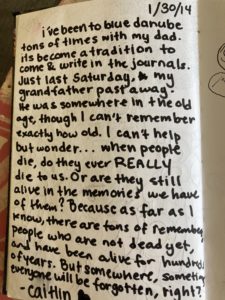 1/30/14
i've been to blue danube
tons of times with my dad.
its become a tradition to
come & write in the journals.
Just last Saturday, my
grandfather past away.
He was somewhere in the old
age, though I can't remember
exactly how old. I can't help
but wonder... when people
die, do they ever REALLY
die to us. Or are they still
alive in the memories we have
of them? Because as far as I
know, there are tons of remembe
people who are not dead yet,
and have been alive for hundre
of years. But somewhere, sometim
everyone will be forgotten, right?
- Caitlin